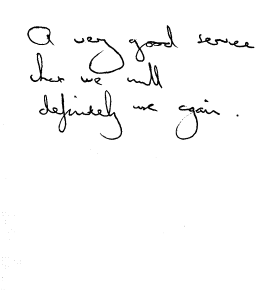 A very good service
that we will
definitely use again.